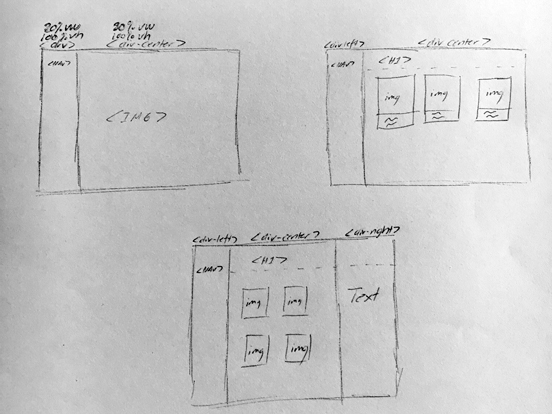 20%vw 80%vw
100%vh 100%vh
<div> <div-center>
<NAV>
<IMG>
<div-left> <div-center>
<NAV> <H1>
img img img
<div-left> <div-center> <div-right>
<NAV> <H1>
img img Text
img img